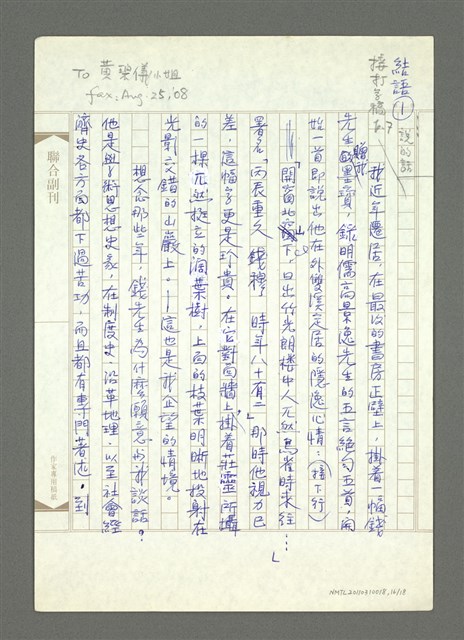 To 黃碧儀小姐
fax: Aug. 25, '08
接打字稿 p.7
結語①
說的話
我近年遷居，在最後的書房正壁上，掛著一幅錢
先生贈我墨寶，錄明儒高景逸先生的五言絕句五首，開
始一首即說出他在外雙溪定居的隱逸心情：(接下行)
「開窗北山下，日出竹光朗樓中人兀然鳥雀時來往…」
署名「丙辰重九 錢穆 時年八十有二」那時他視力已
差，這幅字更是珍貴。在它對面牆上掛著莊靈所攝
的一棵兀然挺立的濶葉樹，上面的枝葉明晰地投射在
光影交錯的山巖上。—這也是我企望的情境。
想念那些年，錢先生為什麼願意與我談話？
他是學術思想史家，在制度史、沿革地理，以至社會經
濟史各方面都下過苦功，而且都有專門著述。到
聯合副刊
作家專用稿紙
NMTL20110310018, 16/18